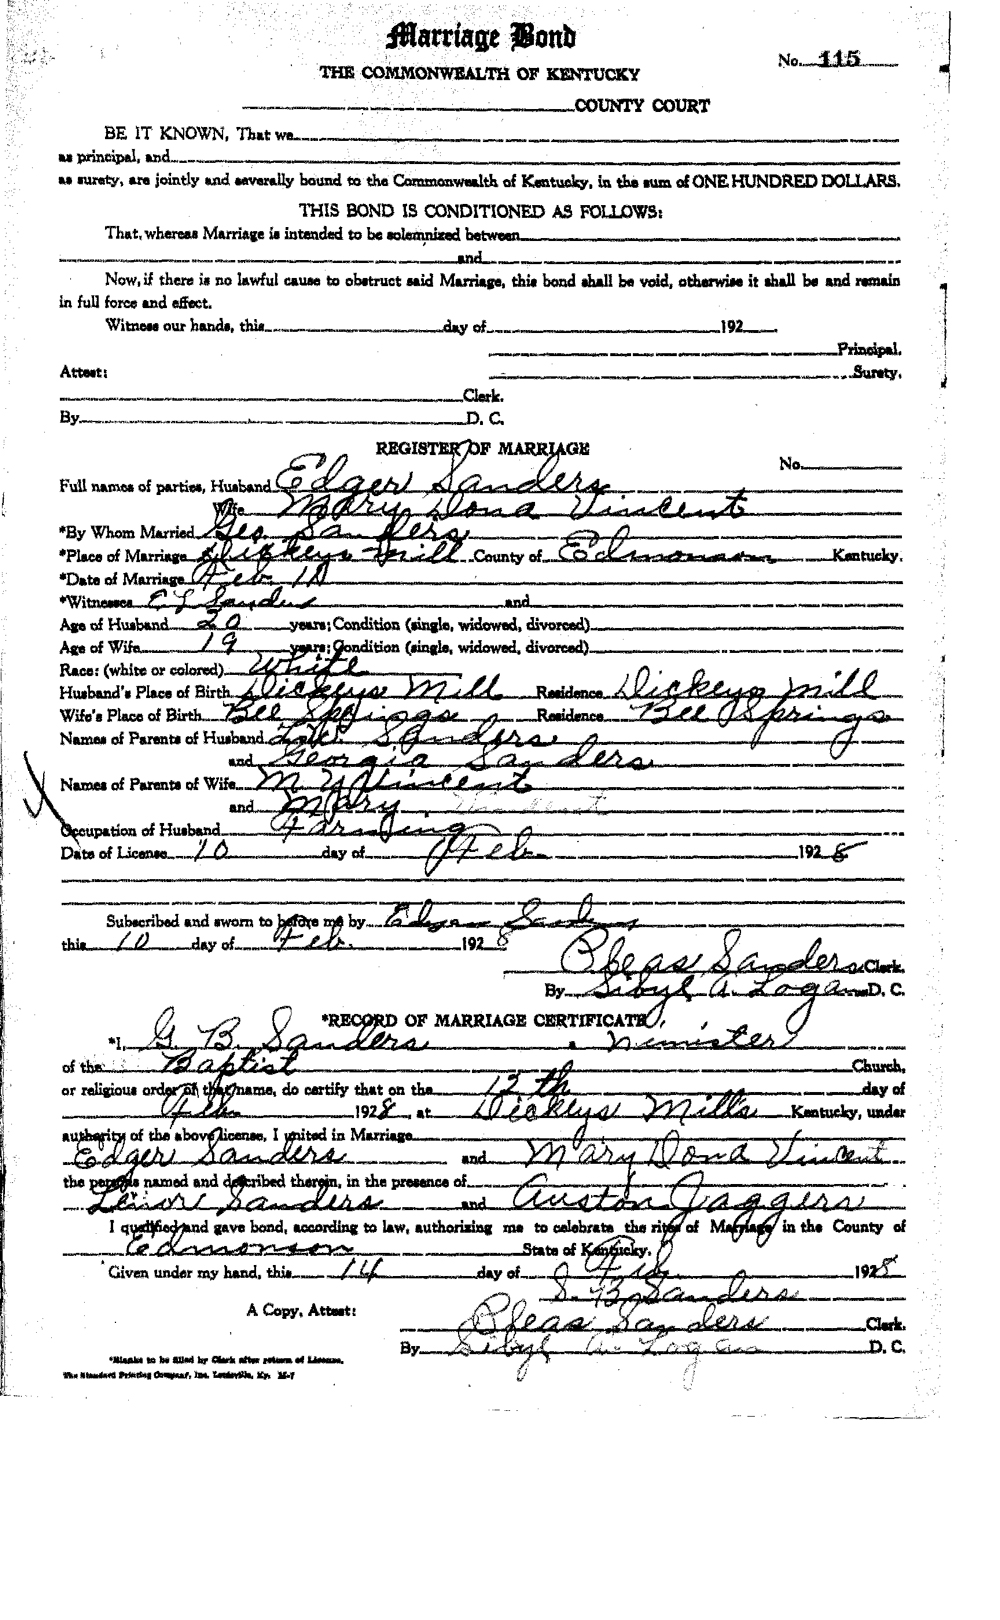 Marriage Bond
No. 115
THE COMMONWEALTH OF KENTUCKY
COUNTY COURT
BE IT KNOWN, That we
as principal, and
as surety, are jointly and severally bound to the Commonwealth of Kentucky, in the sum of ONE HUNDRED DOLLARS.
THIS BOND IS CONDITIONED AS FOLLOWS:
That, whereas Marriage is intended to be solemnized between
and
Now, if there is no lawful cause to obstruct said Marriage, this bond shall be void, otherwise it shall be and remain
in full force and effect.
Witness our hands, this day of 192
Principal.
Attest: Surety.
Clerk.
By D. C.
REGISTER OF MARRIAGE
No.
Full names of parties, Husband Edger Sanders
Wife Mary Dona Vincent
*By Whom Married Geo Sanders
*Place of Marriage Dickeys Mill County of Edmonson Kentucky.
*Date of Marriage Feb
*Witnesses E L Sanders and
Age of Husband 20 years; Condition (single, widowed, divorced)
Age of Wife 19 years; Condition (single, widowed, divorced)
Race: (white or colored) White
Husband's Place of Birth Dickeys Mill Residence Dickeys Mill
Wife's Place of Birth Bee Springs Residence Bee Springs
Names of Parents of Husband Sanders
and Georgia Sanders
Names of Parents of Wife M Vincent
and Mary Vincent
Occupation of Husband Farming
Date of License 10 day of Feb 1928
Subscribed and sworn to before me by Edgar Sanders
this 10 day of Feb. 1928
Pleas Sanders Clerk.
By Sibyl A. Logan D. C.
*RECORD OF MARRIAGE CERTIFICATE
*I, G. B. Sanders a minister
of the Baptist Church,
or religious order of that name, do certify that on the 12th day of
Feb 1928 at Dickeys Mills Kentucky, under
authority of the above license, I united in Marriage
Edger Sanders and Mary Dona Vincent
the persons named and described therein, in the presence of
Lenore Sanders and Auston Jaggers
I qualified and gave bond, according to law, authorizing me to celebrate the rites of Marriage in the County of
Edmonson State of Kentucky.
Given under my hand, this 14 day of Feb. 1928
B. Sanders
A Copy, Attest:
Pleas Sanders Clerk.
By Sibyl A. Logan D. C.
*Blanks to be filled by Clerk after return of License.
The Standard Printing Company, Inc. Louisville, Ky. M-7